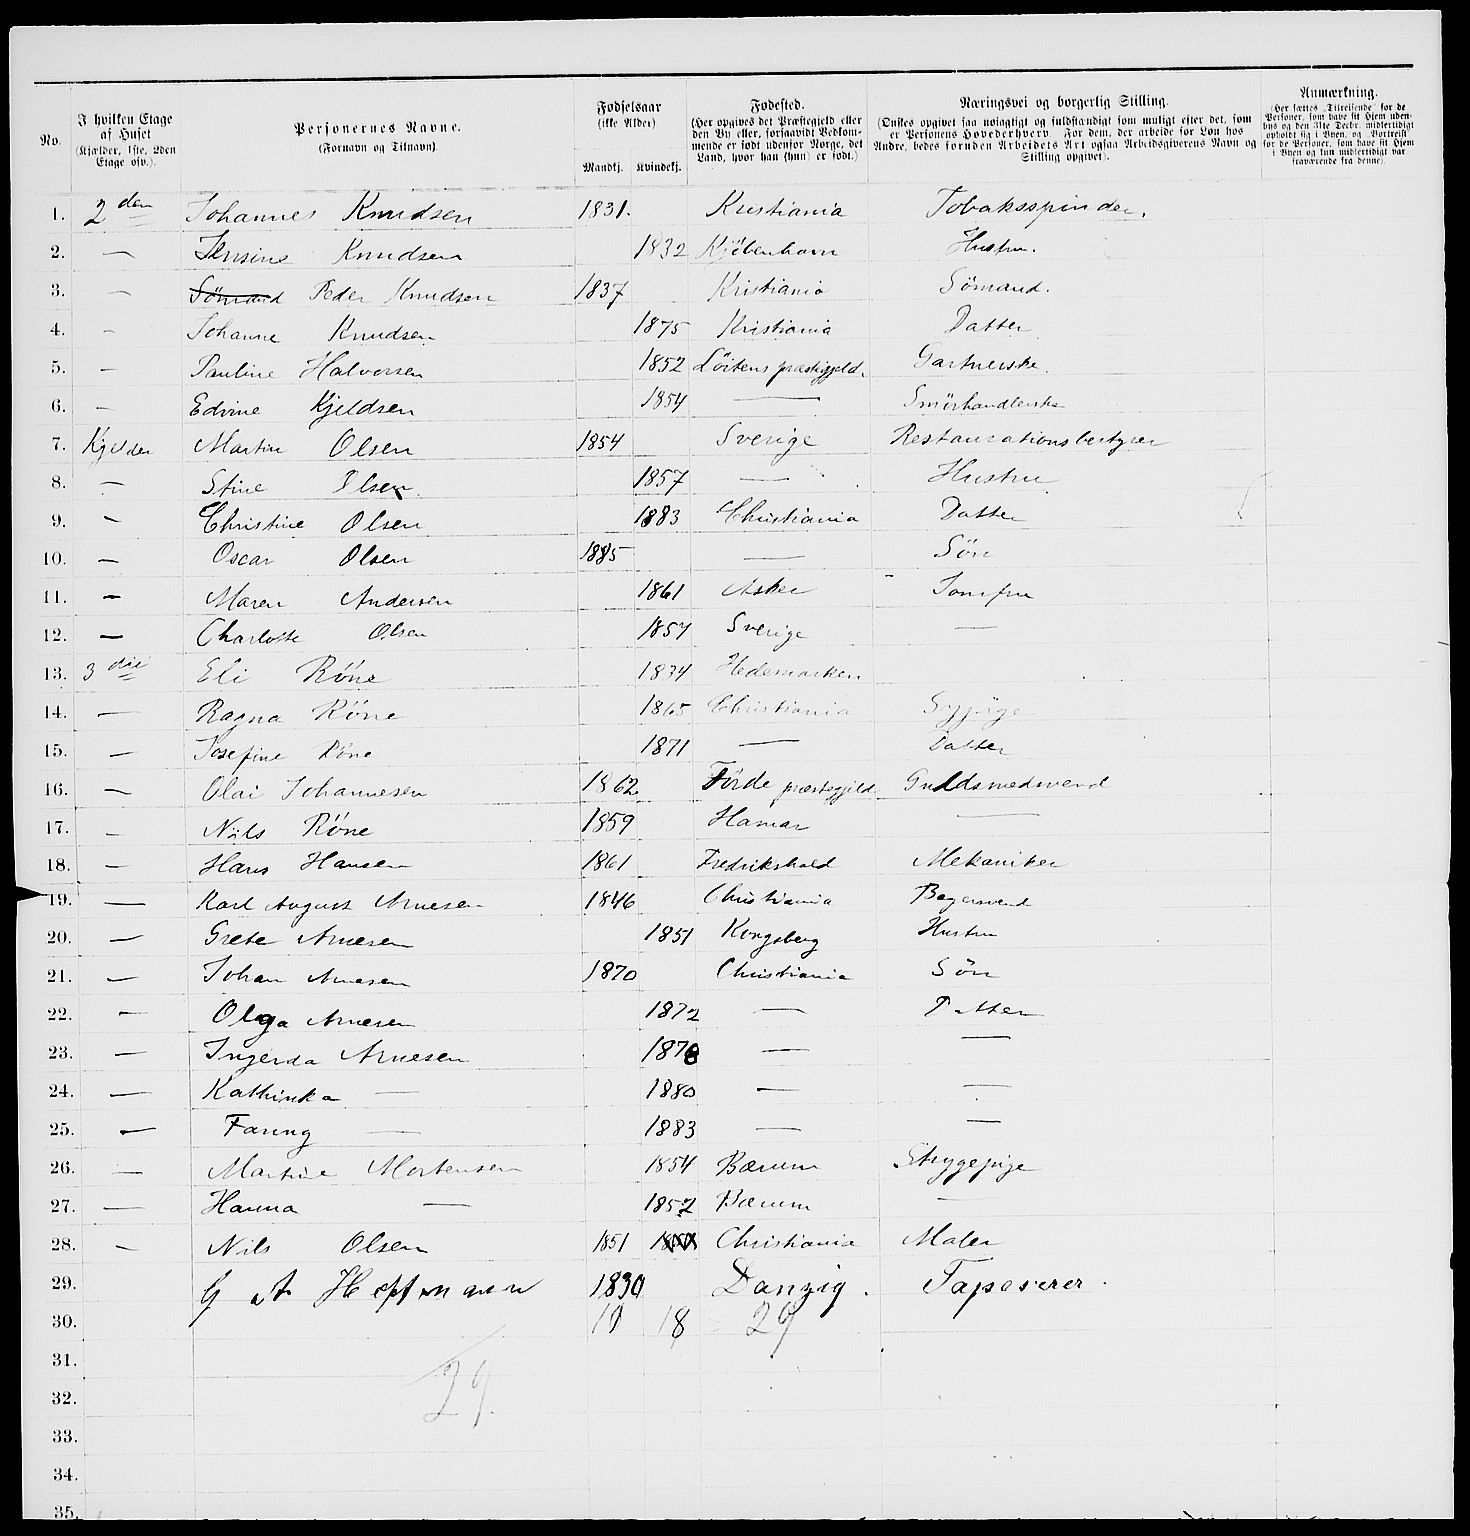 No.
I hvilken Etage af Huset (Kjælder, 1ste, 2den Etage osv.).
Personernes Navne. (Fornavn og Tilnavn)
Fødselsaar (ikke Alder) Mandkj. Kvindekj.
Fødested. (Her opgives det Præstegjeld eller den By eller, forsaavidt Vedkommende er født udenfor Norge, det Land, hvor han (hun) er født.)
Næringsvei og borgerlig Stilling. (Ønskes opgivet saa nøiagtigt og fuldstændigt som muligt efter det, som er Personens Hovederhverv. For dem, der arbeide for Løn hos Andre, bedes foruden Arbeidets Art ogsaa Arbeidsgiverens Navn og Stilling opgivet).
Anmærkning. (Her sættes „Tilreisende" for de Personer, som have sit Hjem udenbys og den 31te Decbr. midlertidigt opholdt sig i Byen, og „Bortreist" for de Personer, som have sit Hjem i Byen og kun midlertidigt var fraværende fra denne).
1. 2den Johannes Knudsen 1831. Kristiania Tobaksspinder.
2. — Jensine Knudsen 1832 Kjöbenhavn Hustru.
3. — Sömand Peder Knudsen 1837 Kristiania Sömand.
4. — Johanne Knudsen 1875 Kristiania Datter
5. — Pauline Halvorsen 1852 Löitens præstegjeld. Gartnerske.
6. — Edvine Kjeldsen 1854 — Smörhandlerske
7. Kjelder Martin Olsen 1854 Sverige Restaurationsbestyrer
8. — Stine Olsen 1857 — Hustru
9. — Christine Olsen 1883 Christiania Datter
10. — Oscar Olsen 1885 — Sön
11. — Maren Andersen 1861 Asker Jomfru
12. — Charlotte Olsen 1857 Sverige —
13. 3die Eli Röne 1834 Hedemarken
14. — Ragna Röne 1865 Christiania Sypige
15. — Josefine Röne 1871 — Datter
16. — Olai Johannesen 1862 Förde præstegjeld Guldsmedsvend
17. — Nils Röne 1859 Hamar —
18. — Hans Hansen 1861 Fredrikshald Mekaniker
19. — Karl August Arnesen 1846 Christiania Bagersvend
20. — Grete Arnesen 1851 Kongsberg Hustru
21. — Johan Arnesen 1870 Christiania Sön
22. — Olga Arnesen 1872 — Datter
23. — Ingerda Arnesen 1878 — —
24. — Kathinka — 1880 — —
25. — Fanny — 1883 — —
26. — Martine Mortensen 1854 Bærum Strygepige
27. — Hanna — 1857 Bærum —
28. — Nils Olsen 1851 Christiania Maler
29. G A Hoffmann 1830 Danzig. Taposerer.
30. 11 18 = 29
31. 29
32.
33.
34.
35.